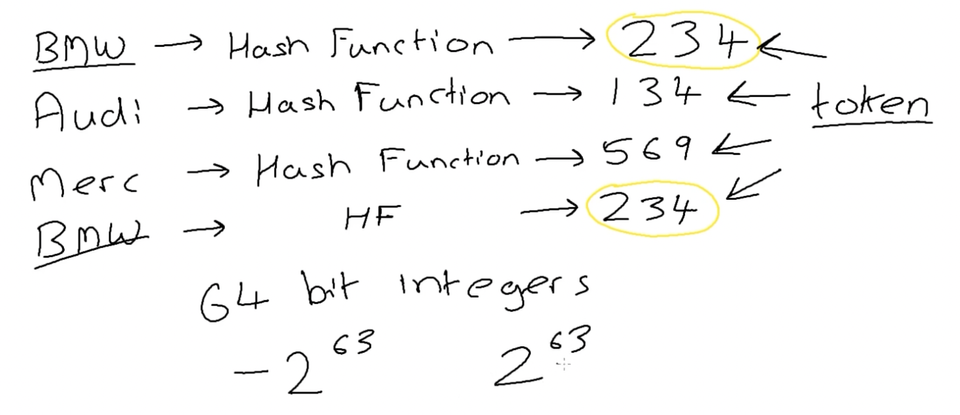 BMW → Hash Function → 234 ←
Audi → Hash Function → 134 ← token
Merc → Hash Function → 569 ←
BMW → HF → 234 ←
64 bit integers
-2^63 2^63